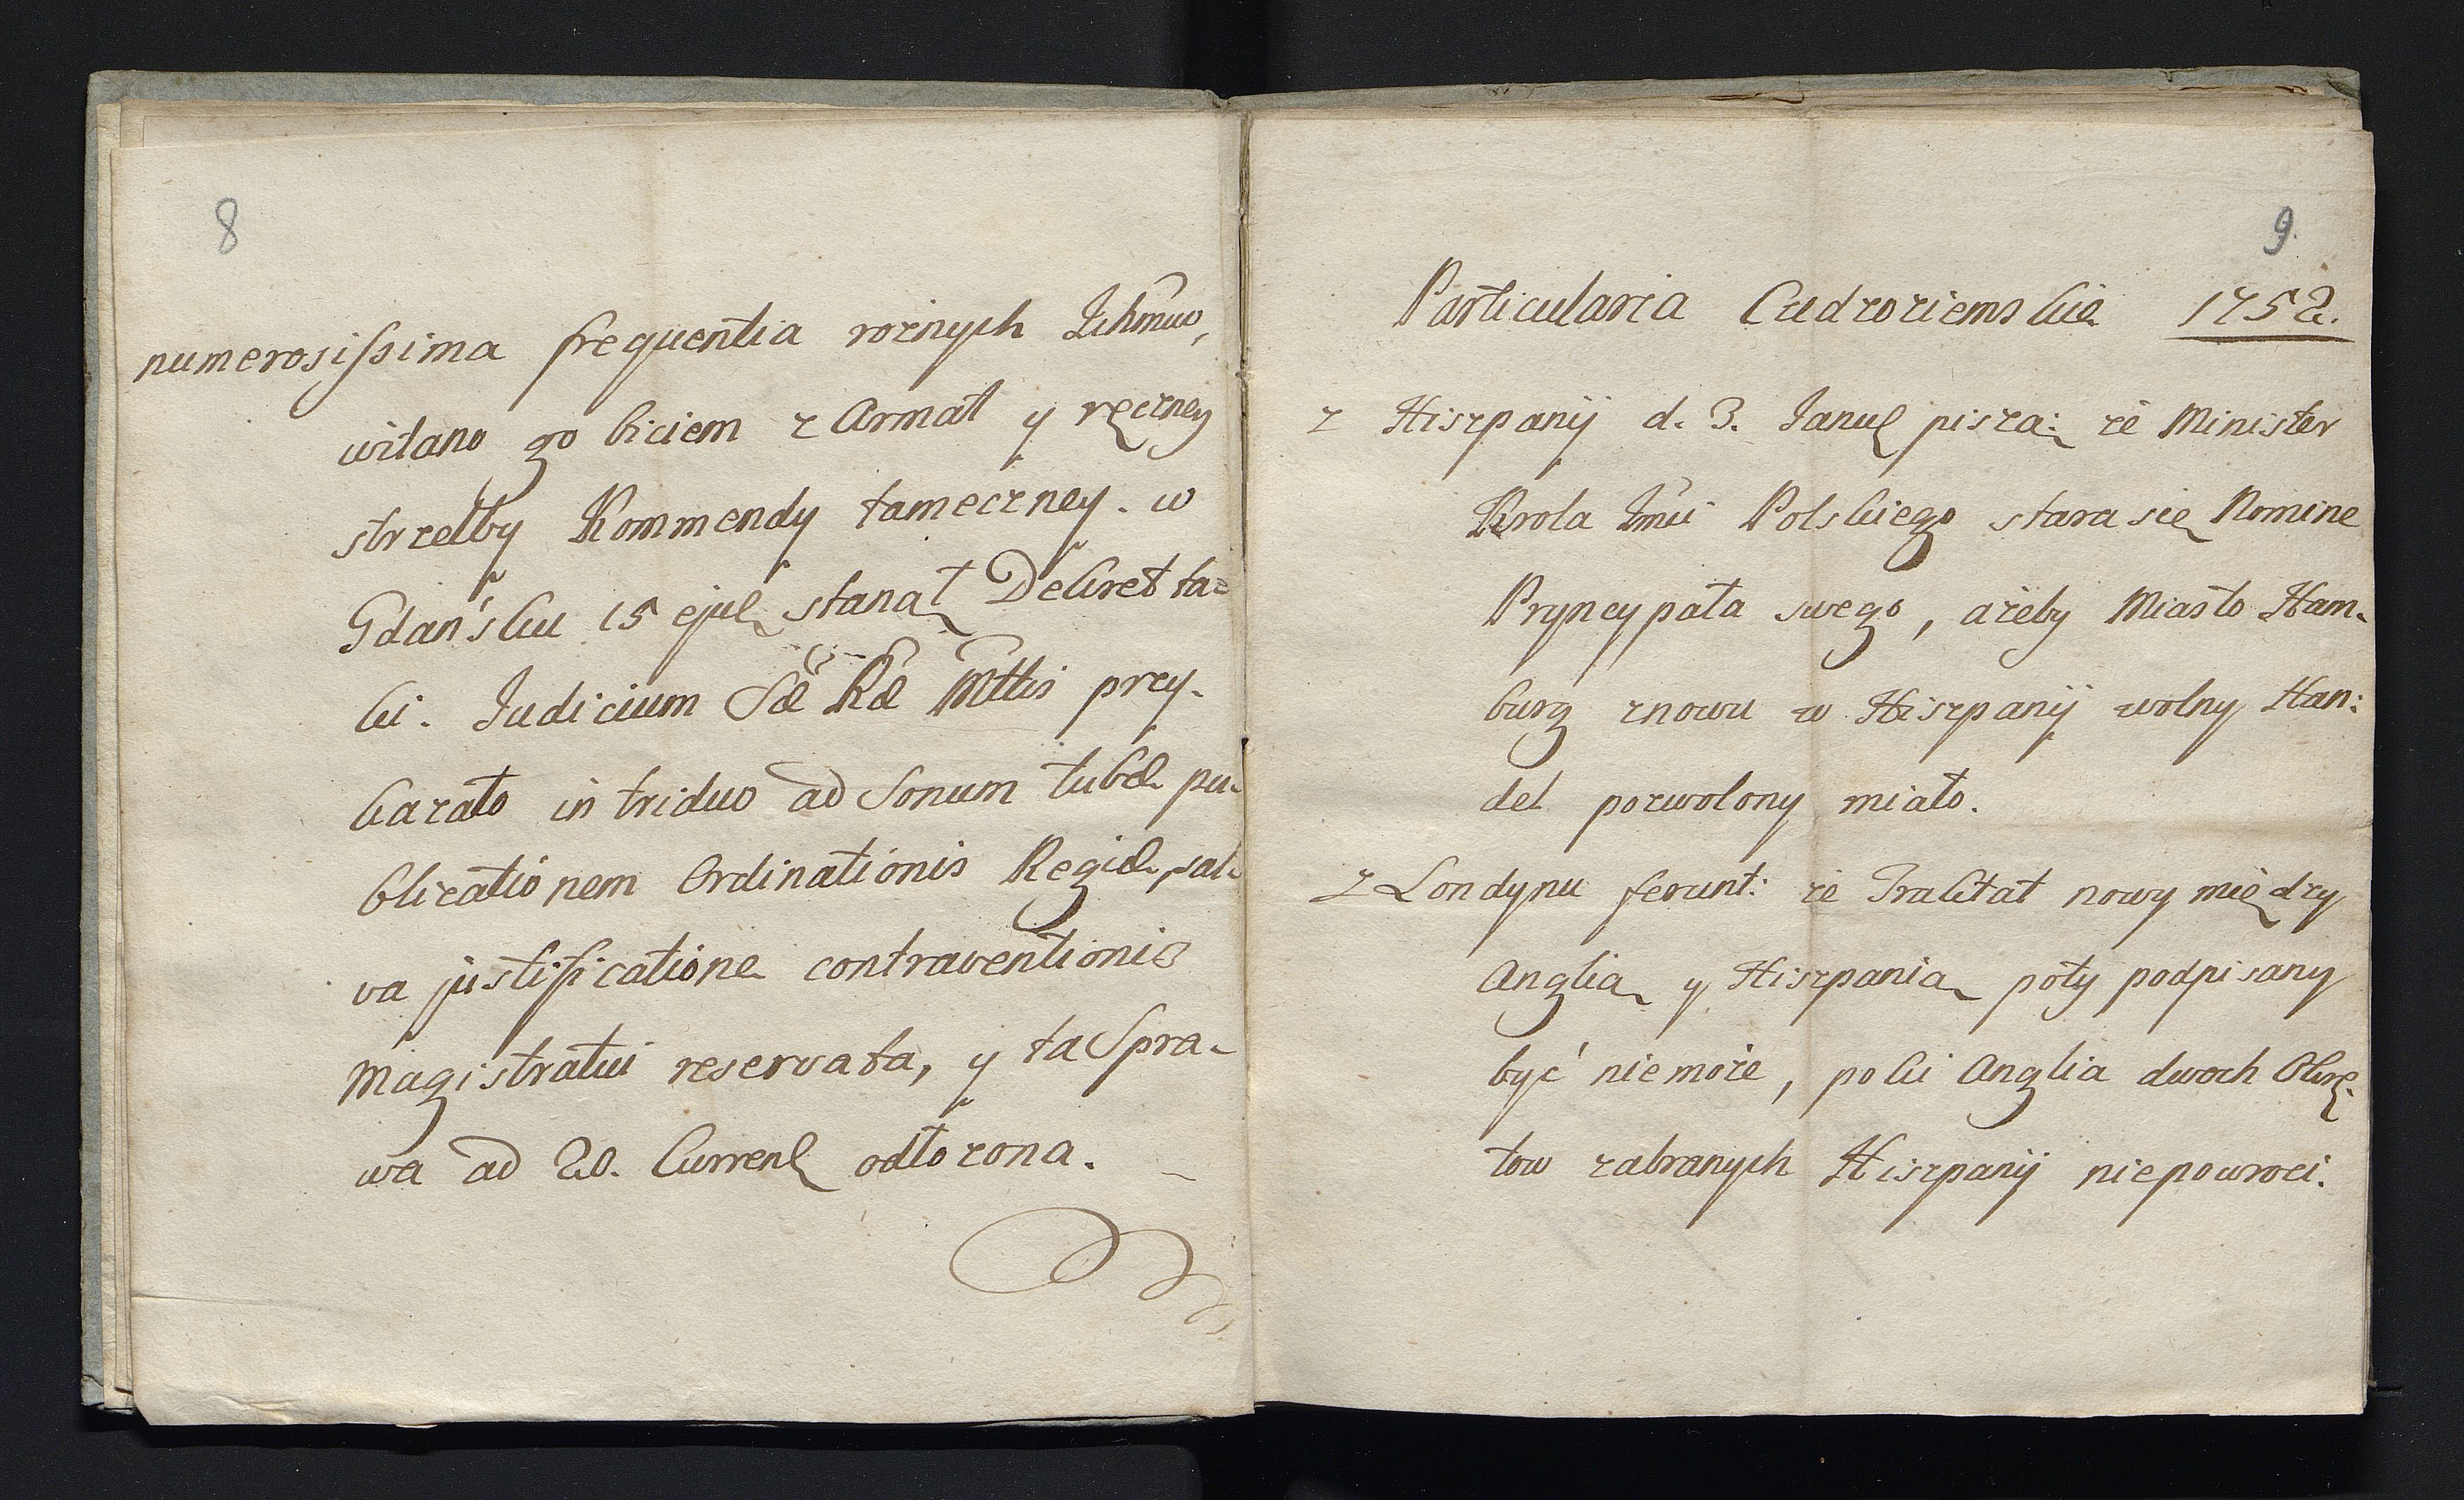 8
numerosissima frequentia rożnych Ichmuw,
witano go biciem z Armat y ręczney
strzelby Kommendy tameczney. w
Gdańsku 15 ejus stanął Dekret ta=
ki. Judicium Sæ Ræ Mttis przy-
kazało in triduo ad Sonum tubæ pu-
blicationem Ordinationis Regiæ, sal-
va justificatione contraventionis
Magistratui reservata, y ta Spra-
wa ad 20. Currents odłożona.
9.
Particularia Cudzoziemskie 1752.
z Hiszpanij d. 3. Januś piszą: że Minister
Krola Jmci Polskiego stara się Nomine
Pryncypała swego, ażeby Miasto Ham-
burg znowu w Hiszpanij wolny Han:
del pozwolony miało.
z Londynu ferunt: że Traktat nowy między
Anglią y Hiszpanią poty podpisany
być niemoże, poki Anglia dwoch Okrę-
tow zabranych Hiszpanij niepowroci.